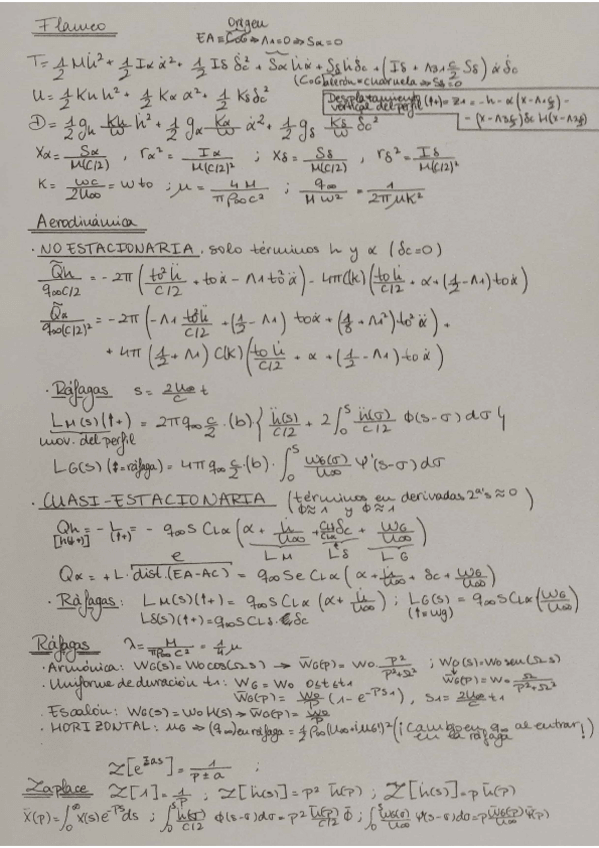 Flameo
Origen
EA = CoG ⇒ Λ1=0 ⇒ Sα=0
T = 1/2 Mḣ² + 1/2 Iα α̇² + 1/2 Iδ δ̇c² + Sα ḣα̇ + Sδ ḣδ̇c + (Iδ + Λ31 c/2 Sδ) α̇ δ̇c
(CoG bisagra = charnela ⇒ Sδ=0
U = 1/2 Kh h² + 1/2 Kα α² + 1/2 Kδ δc²
Desplazamiento vertical del perfil (↑+) = z1 = -h - α(x-Λ1 c/2) -
- (x-Λ2 c/2) δc H(x-Λ2 c/2)
D = 1/2 gh Kh/w ḣ² + 1/2 gα Kα/w α̇² + 1/2 gδ Kδ/w δ̇c²
Xα = Sα/M(c/2) , rα² = Iα/M(c/2)² ; Xδ = Sδ/M(c/2) , rδ² = Iδ/M(c/2)²
K = wc/2U∞ = w to ; μ = 4M/πρ∞c² ; q∞/Mw² = 1/2πμK²
Aerodinámica
· NO ESTACIONARIA . solo términos h y α (δc=0)
Q̃h/q∞c/2 = -2π (to² ḧ/c/2 + to α̇ - Λ1 to² α̈) - 4πC(K) (to ḣ/c/2 + α + (1/2 - Λ1) to α̇)
Q̃α/q∞(c/2)² = -2π (-Λ1 to² ḧ/c/2 + (1/2 - Λ1) to α̇ + (1/8 + Λ1²) to² α̈) +
+ 4π (1/2 + Λ1) C(K) (to ḣ/c/2 + α + (1/2 - Λ1) to α̇)
· Ráfagas s = 2U∞/c t
LM(s)(↑+) = 2πq∞ c/2 · (b) { ḧ(s)/c/2 + 2 ∫₀ˢ ḧ(σ)/c/2 Φ(s-σ) dσ }
mov. del perfil
LG(s) (↑=ráfaga) = 4πq∞ c/2 · (b) · ∫₀ˢ wG(σ)/U∞ Ψ'(s-σ) dσ
· CUASI-ESTACIONARIA (términos en derivadas 2ª's ≈ 0)
Φ≈1 y Ψ≈1
Qh = -L = - q∞ S CLα (α + ḣ/U∞ + CLδ/CLα δc + wG/U∞)
[h↓+] (↑+) LM Lδ LG
e
Qα = +L · dist.(EA-AC) = q∞ S e CLα (α + ḣ/U∞ + δc + wG/U∞)
· Ráfagas: LM(s)(↑+) = q∞ S CLα (α + ḣ/U∞) ; LG(s) = q∞ S CLα (wG/U∞)
(↑=wg)
Lδ(s)(↑+) = q∞ S CLδ · δc
Ráfagas λ = M/πρ∞c² = 1/4 μ
· Armónica: wG(s) = wo cos(Ω s) → w̄G(p) = wo · p/p²+Ω² ; wG(s) = wo sen(Ω s)
w̄G(p) = wo · Ω/p²+Ω²
· Uniforme de duración t1: wG = wo 0≤t≤t1
w̄G(p) = wo/p (1 - e^-ps1) , s1 = 2U∞/c t1
· Escalón: wG(s) = wo H(s) → w̄G(p) = wo/p
· HORIZONTAL: uG ⇒ (q∞) en ráfaga = 1/2 ρ∞ (U∞+uG)² (¡Cambo en q∞ al entrar en la ráfaga!)
Z[e^±as] = 1/p±a ;
Zaplace Z[1] = 1/p ; Z[ḧ(s)] = p² h̄(p) ; Z[ḣ(s)] = p h̄(p)
x̄(p) = ∫₀^∞ x(s) e^-ps ds ; ∫₀ˢ ḧ(σ)/c/2 Φ(s-σ) dσ = p² h̄(p)/c/2 Φ̄ ; ∫₀ˢ wG(σ)/U∞ Ψ'(s-σ) dσ = p w̄G(p)/U∞ Ψ̄(p)